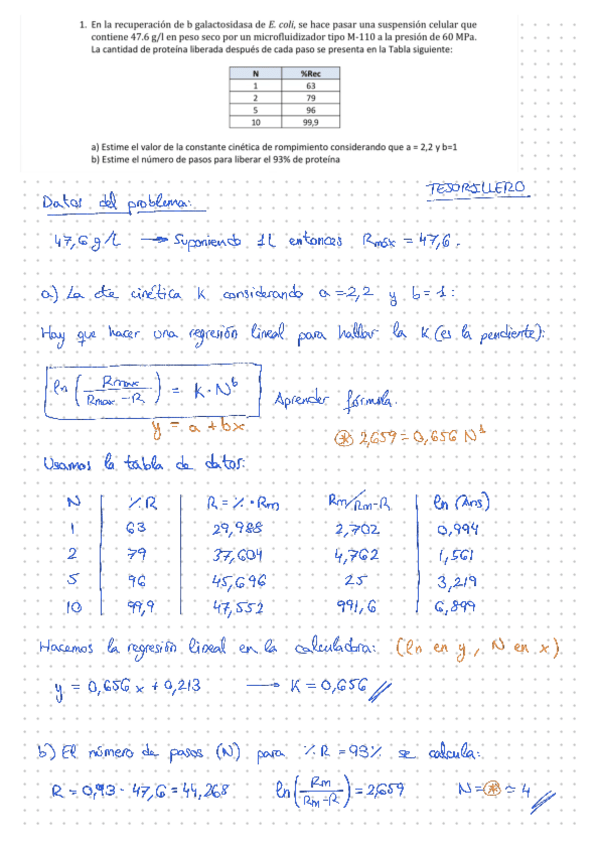 1. En la recuperación de b galactosidasa de E. coli, se hace pasar una suspensión celular que
contiene 47.6 g/l en peso seco por un microfluidizador tipo M-110 a la presión de 60 MPa.
La cantidad de proteína liberada después de cada paso se presenta en la Tabla siguiente:
N %Rec
1 63
2 79
5 96
10 99,9
a) Estime el valor de la constante cinética de rompimiento considerando que a = 2,2 y b=1
b) Estime el número de pasos para liberar el 93% de proteína
TESORILLERO
Datos del problema:
47,6 g/L → Suponiendo 1L entonces Rmáx = 47,6.
a) La cte cinética K considerando a = 2,2 y b = 1:
Hay que hacer una regresión lineal para hallar la K (es la pendiente):
ln (Rmax / Rmax - R) = K · N^b Aprender fórmula.
y = a + bx
⊛ 2,659 = 0,656 N^1
Usamos la tabla de datos:
N % R R = % · Rm Rm/Rm-R ln (Ans)
1 63 29,988 2,702 0,994
2 79 37,604 4,762 1,561
5 96 45,696 25 3,219
10 99,9 47,552 991,6 6,899
Hacemos la regresión lineal en la calculadora: (ln en y, N en x)
y = 0,656 x + 0,213 → K = 0,656 //
b) El número de pasos (N) para % R = 93% se calcula:
R = 0,93 · 47,6 = 44,268 ln (Rm / Rm - R) = 2,659 N = ⊛ ≃ 4 //